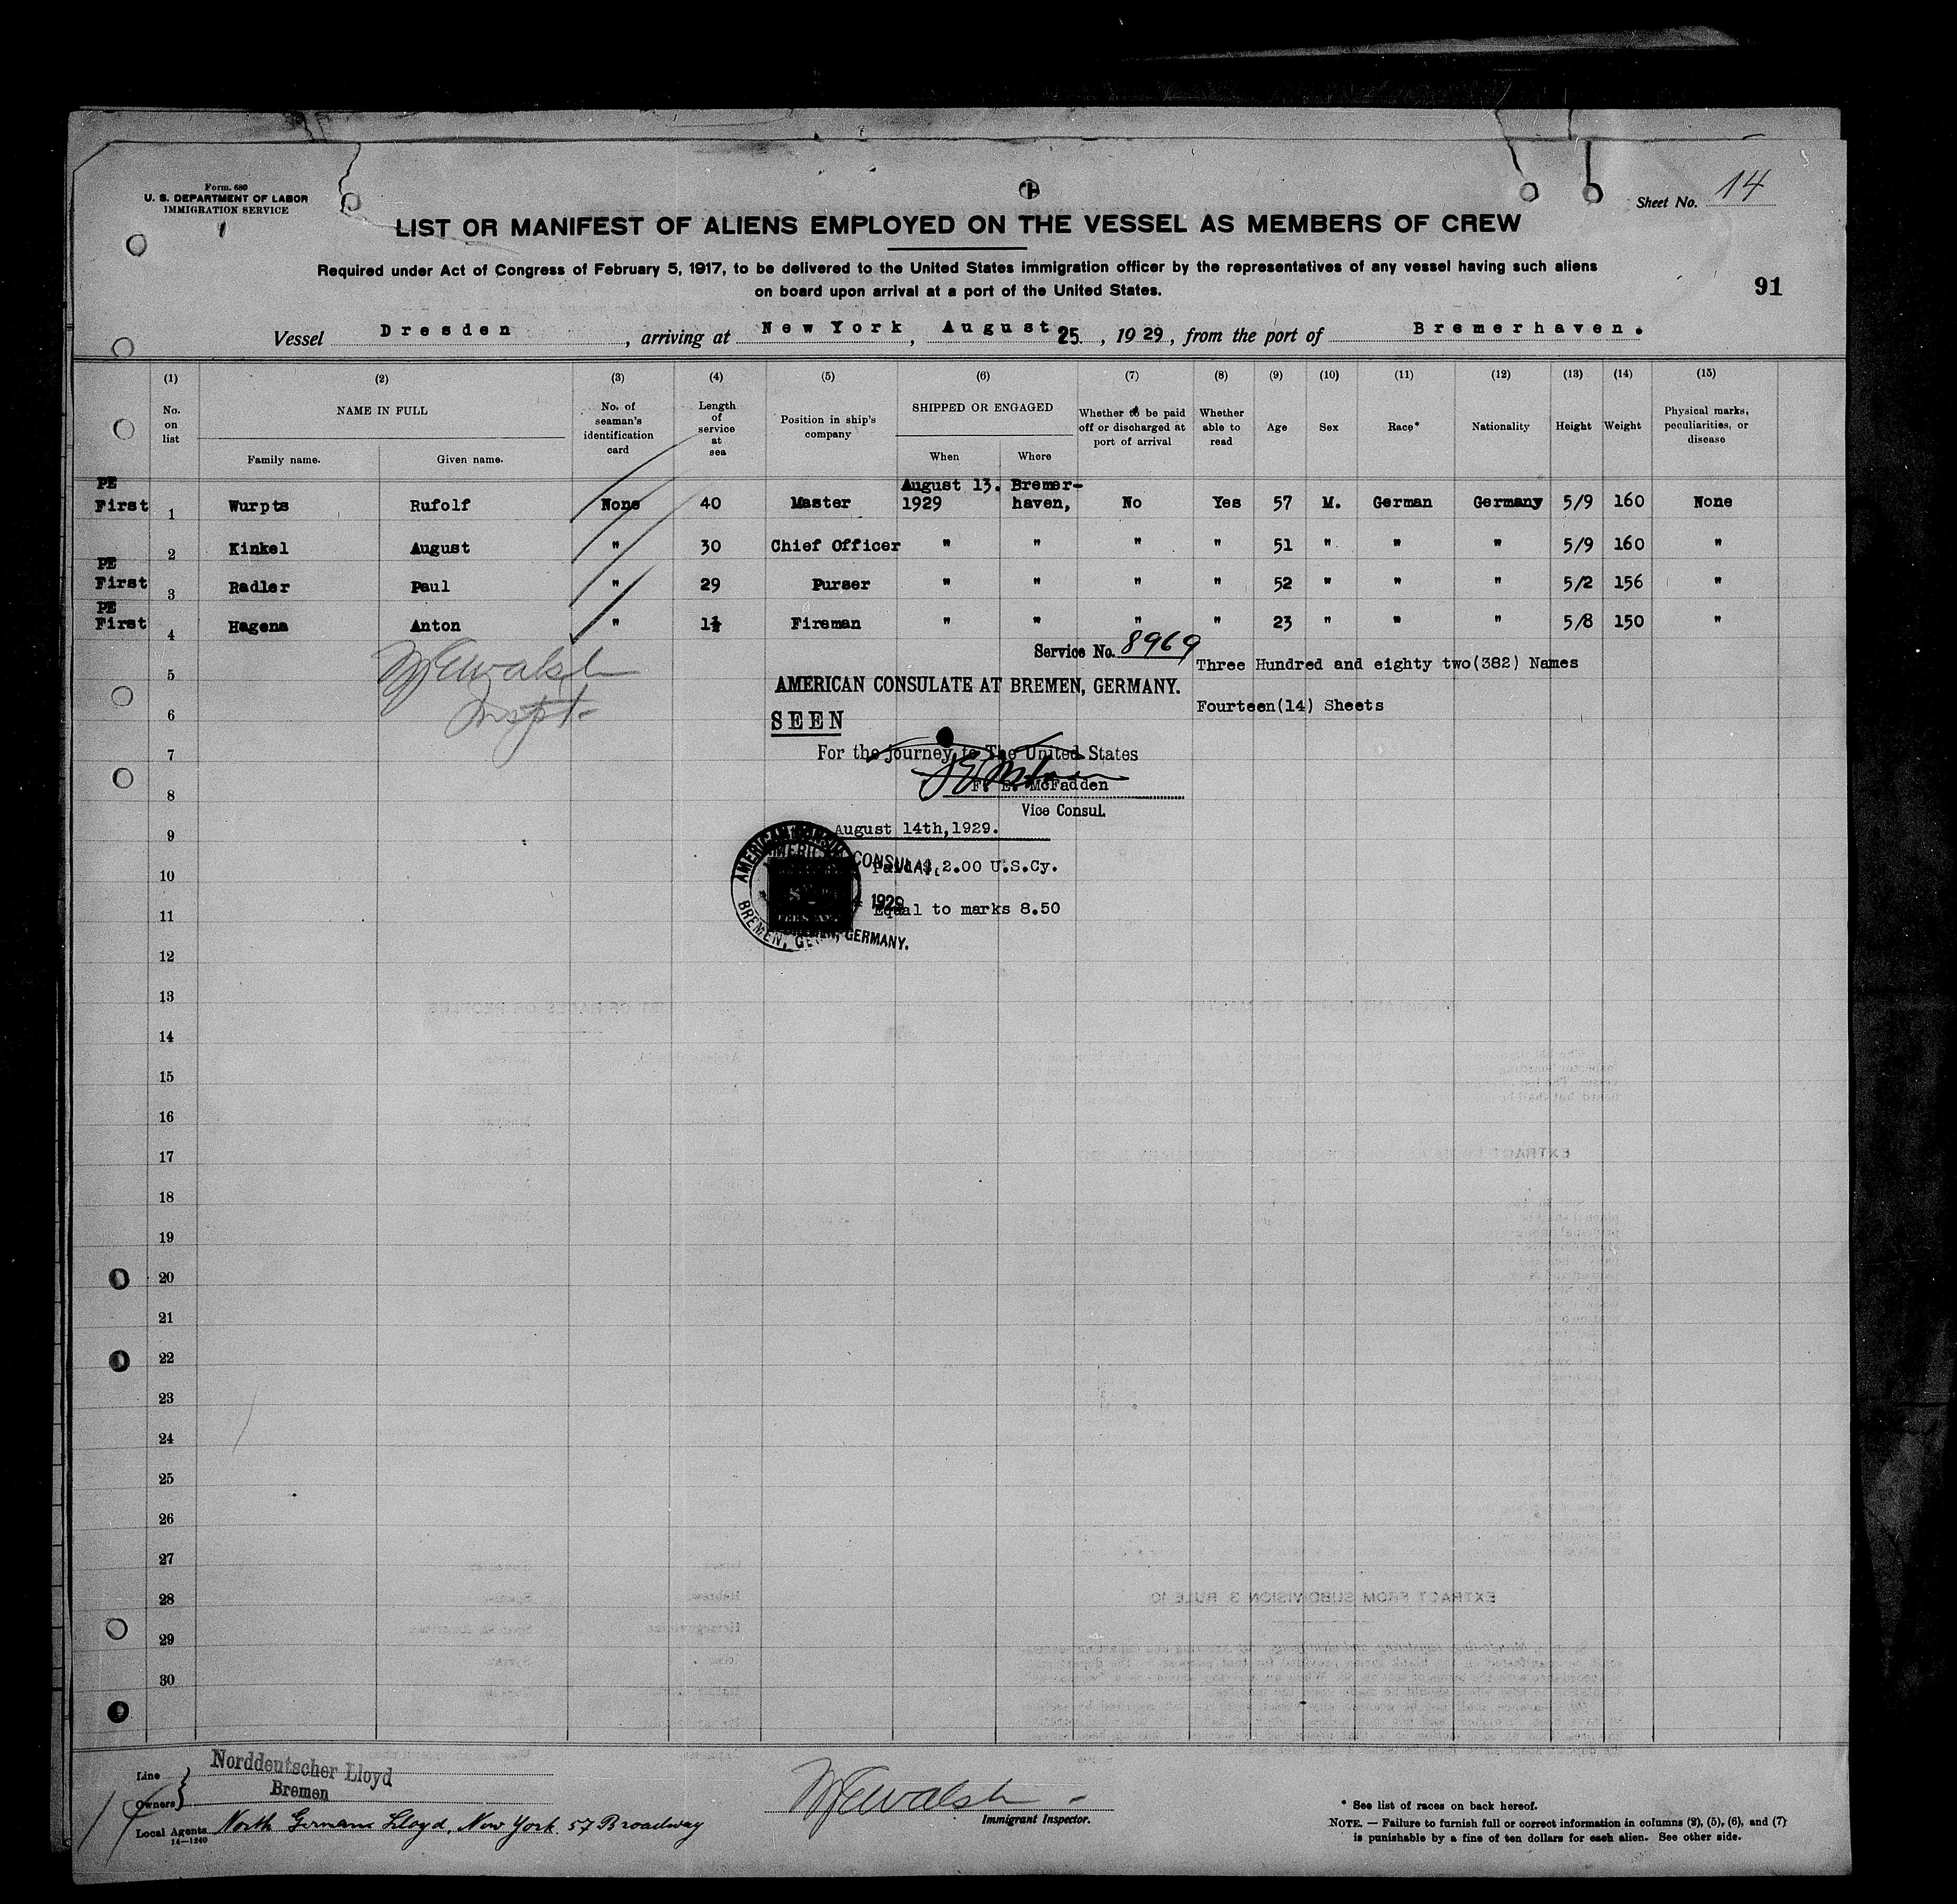 Form. 680
U. S. DEPARTMENT OF LABOR
IMMIGRATION SERVICE
Sheet No. 14
LIST OR MANIFEST OF ALIENS EMPLOYED ON THE VESSEL AS MEMBERS OF CREW
Required under Act of Congress of February 5, 1917, to be delivered to the United States immigration officer by the representatives of any vessel having such aliens
on board upon arrival at a port of the United States.
91
Vessel Dresden, arriving at New York, August 25., 1929, from the port of Bremerhaven.
(1) (2) (3) (4) (5) (6) (7) (8) (9) (10) (11) (12) (13) (14) (15)
No. on list NAME IN FULL Family name. Given name. No. of seaman's identification card Length of service at sea Position in ship's company SHIPPED OR ENGAGED When Where Whether to be paid off or discharged at port of arrival Whether able to read Age Sex Race* Nationality Height Weight Physical marks, peculiarities, or disease
PE August 13. Bremer-
First 1 Wurpts Rufolf None 40 Master 1929 haven, No Yes 57 M. German Germany 5/9 160 None
2 Kinkel August " 30 Chief Officer " " " " 51 " " " 5/9 160 "
PE
First 3 Radler Paul " 29 Purser " " " " 52 " " " 5/2 156 "
PE
First 4 Hagena Anton " 1½ Fireman " " " " 23 " " " 5/8 150 "
Service No. 8969
Three Hundred and eighty two(382) Names
5
Walsh
AMERICAN CONSULATE AT BREMEN, GERMANY.
Fourteen(14) Sheets
6
Inspt-
SEEN
7
For the journey to The United States
8
F. E. McFadden
Vice Consul.
9
August 14th,1929.
10
Paid $ 2.00 U.S.Cy.
AMERICAN CONSULAR
1929
BREMEN, GERMANY.
11
Equal to marks 8.50
12
13
14
15
16
17
18
19
20
21
22
23
24
25
26
27
28
EXTRACT FROM SUBDIVISION 3 RULE 10
29
30
Line
Owners
Norddeutscher Lloyd
Bremen
Local Agents North German Lloyd, New York. 57 Broadway
14—1240
Walsh -
Immigrant Inspector.
* See list of races on back hereof.
NOTE. — Failure to furnish full or correct information in columns (2), (5), (6), and (7)
is punishable by a fine of ten dollars for each alien. See other side.